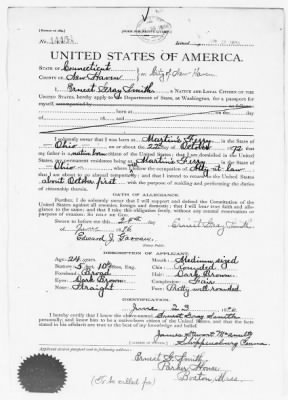 [FORM FOR NATIVE CITIZEN.]
No. Issued
UNITED STATES OF AMERICA.
STATE OF Connecticut
COUNTY OF New Haven City of New Haven
I, Ernest Gray Smith, A NATIVE AND LOYAL CITIZEN OF THE
UNITED STATES, hereby apply to the Department of State, at Washington, for a passport for
myself,
born at
I solemnly swear that I was born at Martin's Ferry, in the State of
Ohio, on or about the 22nd day of October, 1872
that I am a citizen of the United States; that I am domiciled in the United
States, my permanent residence being at Martin's Ferry, in the State of
Ohio, where I follow the occupation of Att'y at law
that I am about to go abroad temporarily; and that I intend to return to the United States
about October first with the purpose of residing and performing the duties
of citizenship therein.
OATH OF ALLEGIANCE.
Further, I do solemnly swear that I will support and defend the Constitution of the
United States against all enemies, foreign and domestic; that I will bear true faith and alle-
giance to the same; and that I take this obligation freely, without any mental reservation or
purpose of evasion: SO HELP ME GOD.
Sworn to before me this day Ernest Gray Smith
of June, 1896
Edward J.
Notary Public.
DESCRIPTION OF APPLICANT.
Age: 24 years. Mouth: Medium sized
Stature: 5 feet, inches, Eng. Chin: Rounded
Forehead: Broad Hair: Dark Brown
Eyes: Dark Brown Complexion: Fair
Nose: Straight Face: Pretty well rounded
IDENTIFICATION.
June 23, 1896.
I hereby certify that I know the above-named Ernest Gray Smith
personally, and know him to be a native-born citizen of the United States, and that the facts
stated in his affidavit are true to the best of my knowledge and belief.
James
Shippensburg Penna.
Applicant desires passport sent to following address:
Ernest G. Smith,
Parker House
Boston, Mass.
(To be called for)